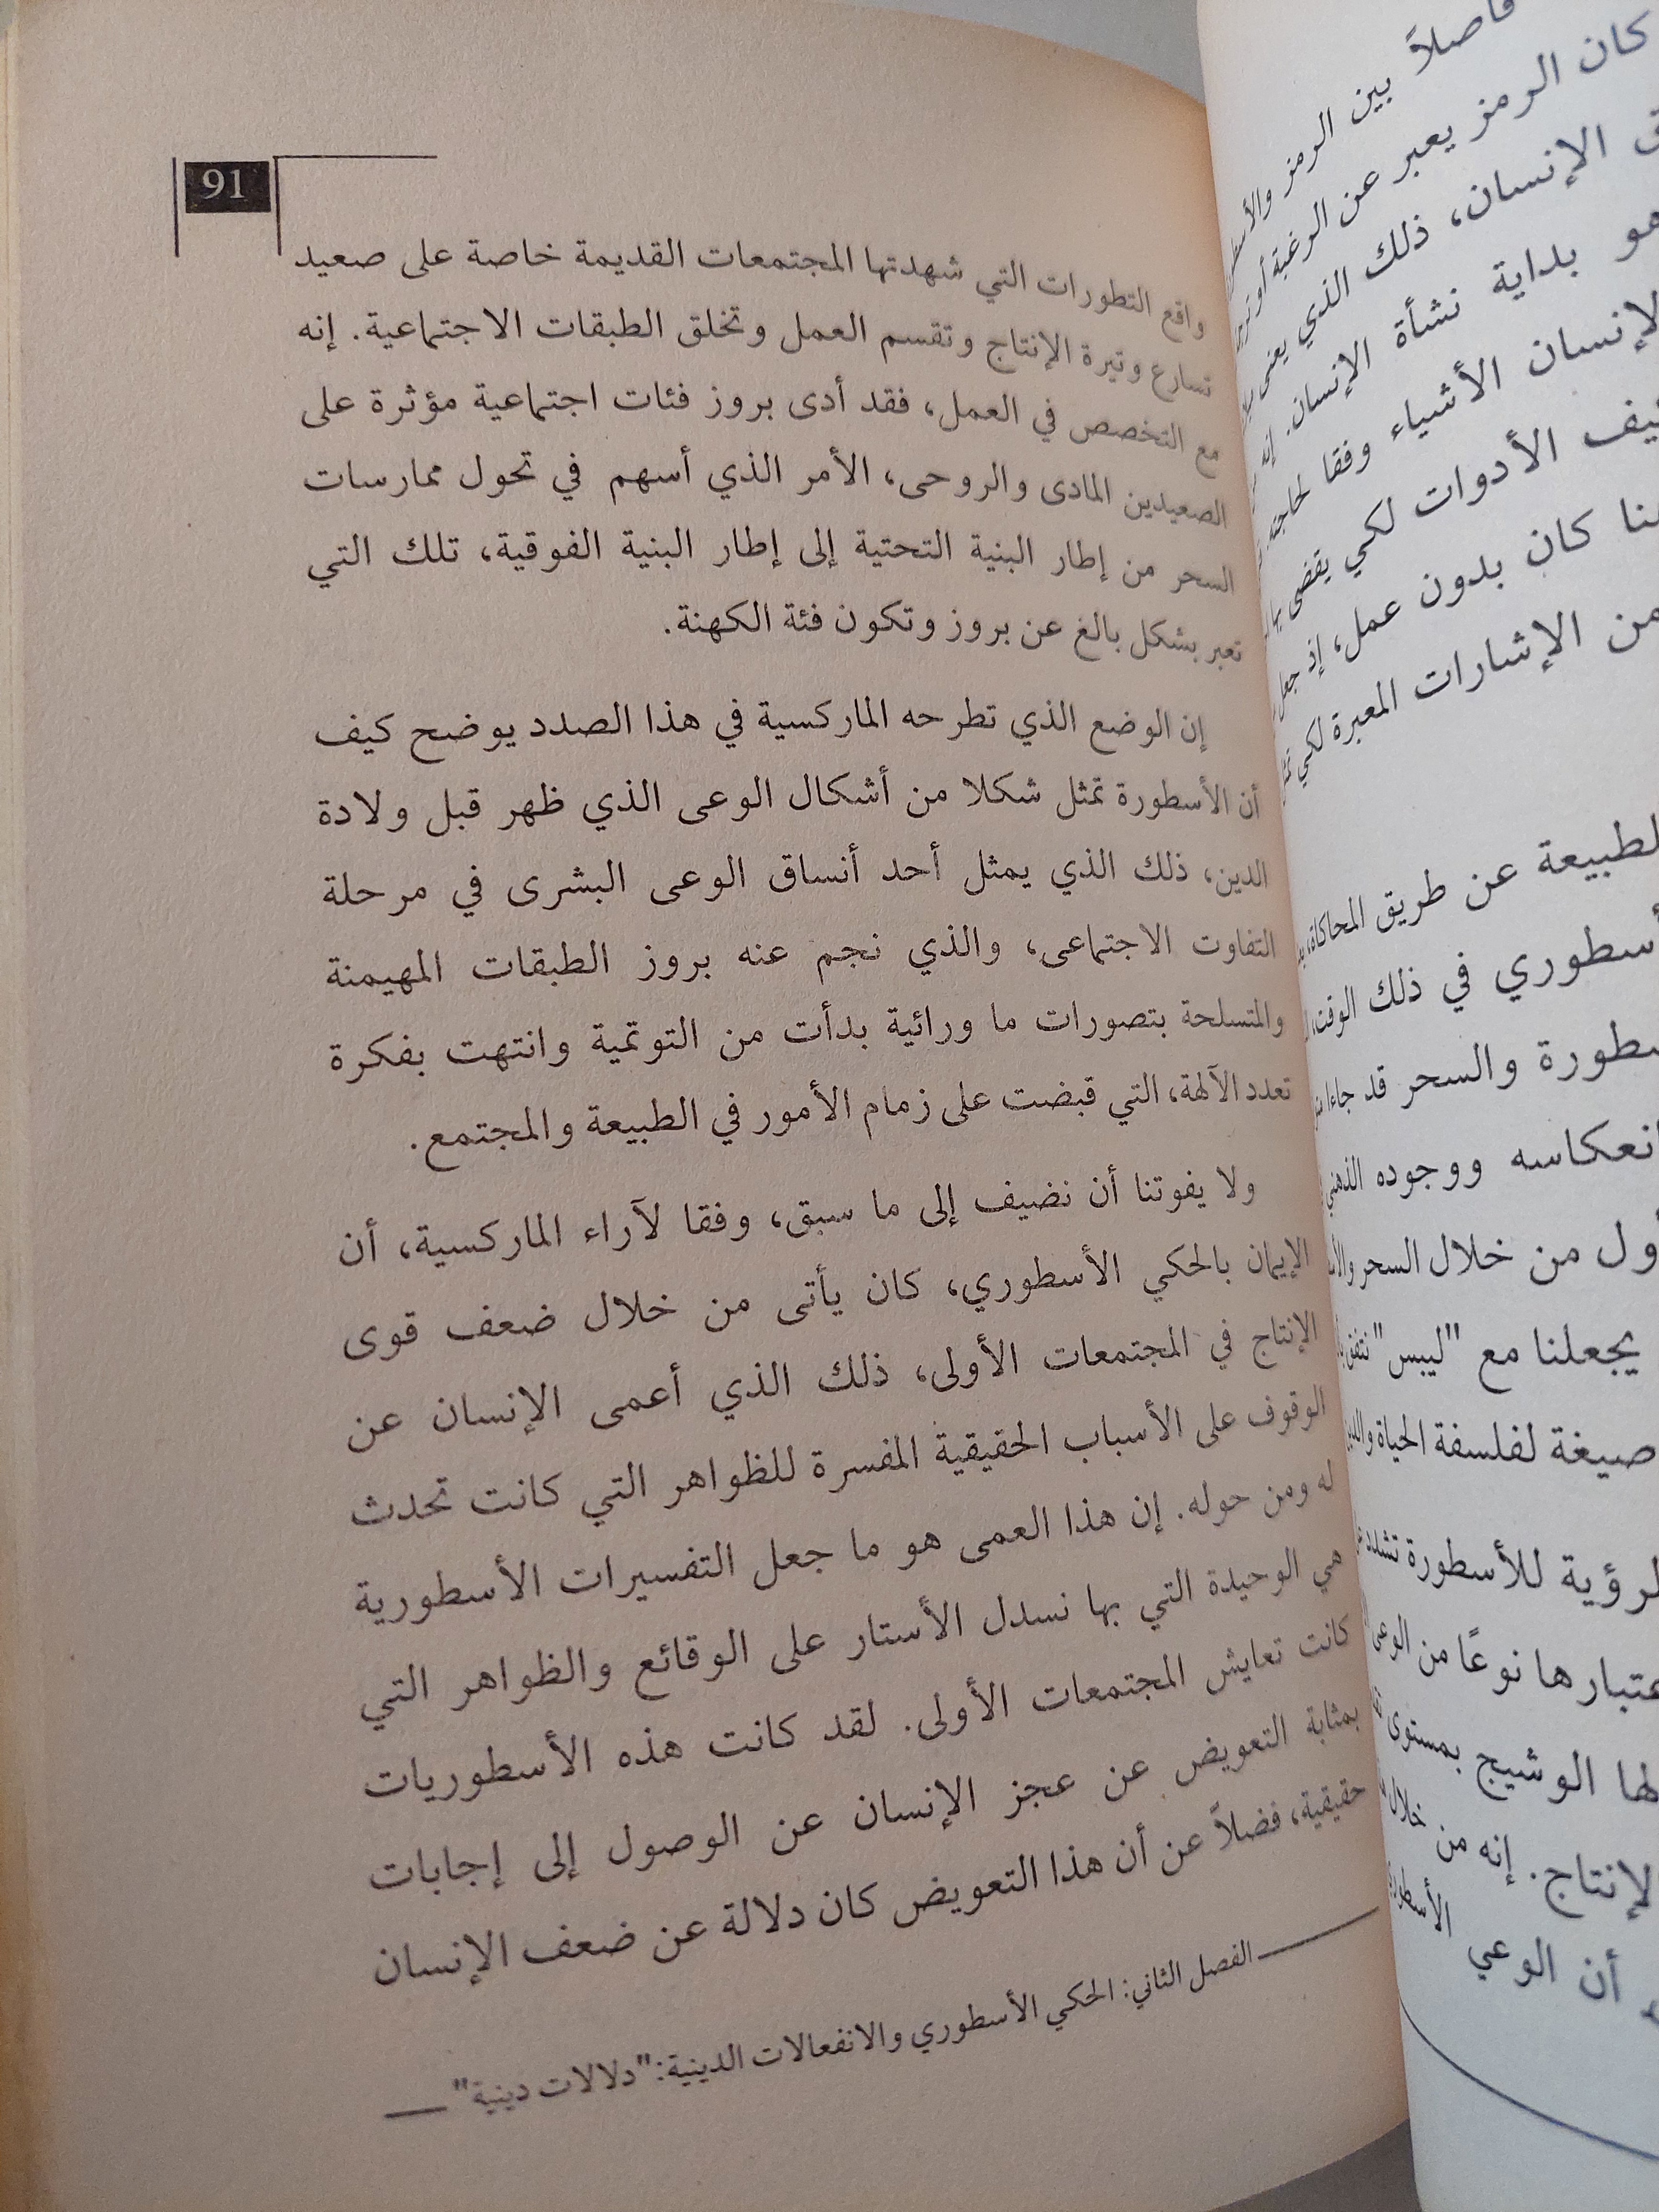 91
واقع التطورات التي شهدتها المجتمعات القديمة خاصة على صعيد
تسارع وتيرة الإنتاج وتقسم العمل وتخلق الطبقات الاجتماعية. إنه
مع التخصص في العمل، فقد أدى بروز فئات اجتماعية مؤثرة على
الصعيدين المادى والروحى، الأمر الذي أسهم في تحول ممارسات
السحر من إطار البنية التحتية إلى إطار البنية الفوقية، تلك التي
تعبر بشكل بالغ عن بروز وتكون فئة الكهنة.
إن الوضع الذي تطرحه الماركسية في هذا الصدد يوضح كيف
أن الأسطورة تمثل شكلا من أشكال الوعى الذي ظهر قبل ولادة
الدين، ذلك الذي يمثل أحد أنساق الوعى البشرى في مرحلة
التفاوت الاجتماعى، والذي نجم عنه بروز الطبقات المهيمنة
والمتسلحة بتصورات ما ورائية بدأت من التوتمية وانتهت بفكرة
تعدد الآلهة، التي قبضت على زمام الأمور في الطبيعة والمجتمع.
ولا يفوتنا أن نضيف إلى ما سبق، وفقا لآراء الماركسية، أن
الإيمان بالحكي الأسطوري، كان يأتى من خلال ضعف قوى
الإنتاج في المجتمعات الأولى، ذلك الذي أعمى الإنسان عن
الوقوف على الأسباب الحقيقية المفسرة للظواهر التي كانت تحدث
له ومن حوله. إن هذا العمى هو ما جعل التفسيرات الأسطورية
هي الوحيدة التي بها نسدل الأستار على الوقائع والظواهر التي
كانت تعايش المجتمعات الأولى. لقد كانت هذه الأسطوريات
بمثابة التعويض عن عجز الإنسان عن الوصول إلى إجابات
حقيقية، فضلاً عن أن هذا التعويض كان دلالة عن ضعف الإنسان
الفصل الثاني: الحكي الأسطوري والانفعالات الدينية: "دلالات دينية"
فاصلاً بين الرمز
كان الرمز يعبر عن الرغبة أو
الإنسان، ذلك الذي
بداية نشأة الإنسان. إنه
الإنسان الأشياء وفقا
الأدوات لكي يقضى
كان بدون عمل، إذ جعل
من الإشارات المعبرة لكي
الطبيعة عن طريق المحاكاة،
في ذلك الوقت،
والسحر قد جاءا
انعكاسه ووجوده الذهني
من خلال السحر
يجعلنا مع "ليبس" نتفق
صيغة لفلسفة الحياة
للأسطورة تشدد
نوعًا من الوعى
الوشيج بمستوى
الإنتاج. إنه من خلال
أن الوعي